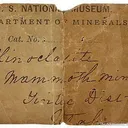 U. S. NATIONAL MUSEUM.
DEPARTMENT OF MINERALS
Cat. No.
Clinoclasite
Mammoth Mine
Tintic Dist
Utah